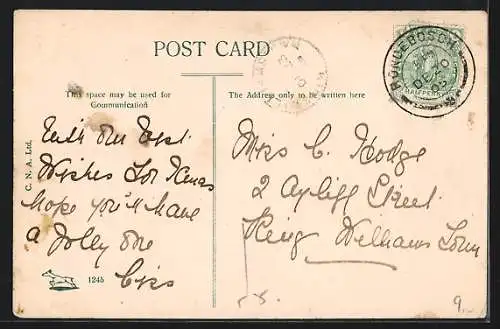 POST CARD
This space may be used for
Communication
The Address only to be written here
RONDEBOSCH
DE 20
HALFPENNY
With our best
Wishes for Xmas
hope you'll have
a Jolly one
Ciss
Miss C. Hodge
2 Ayliff Street
King Williams Town
C. N. A. Ltd.
1245
9